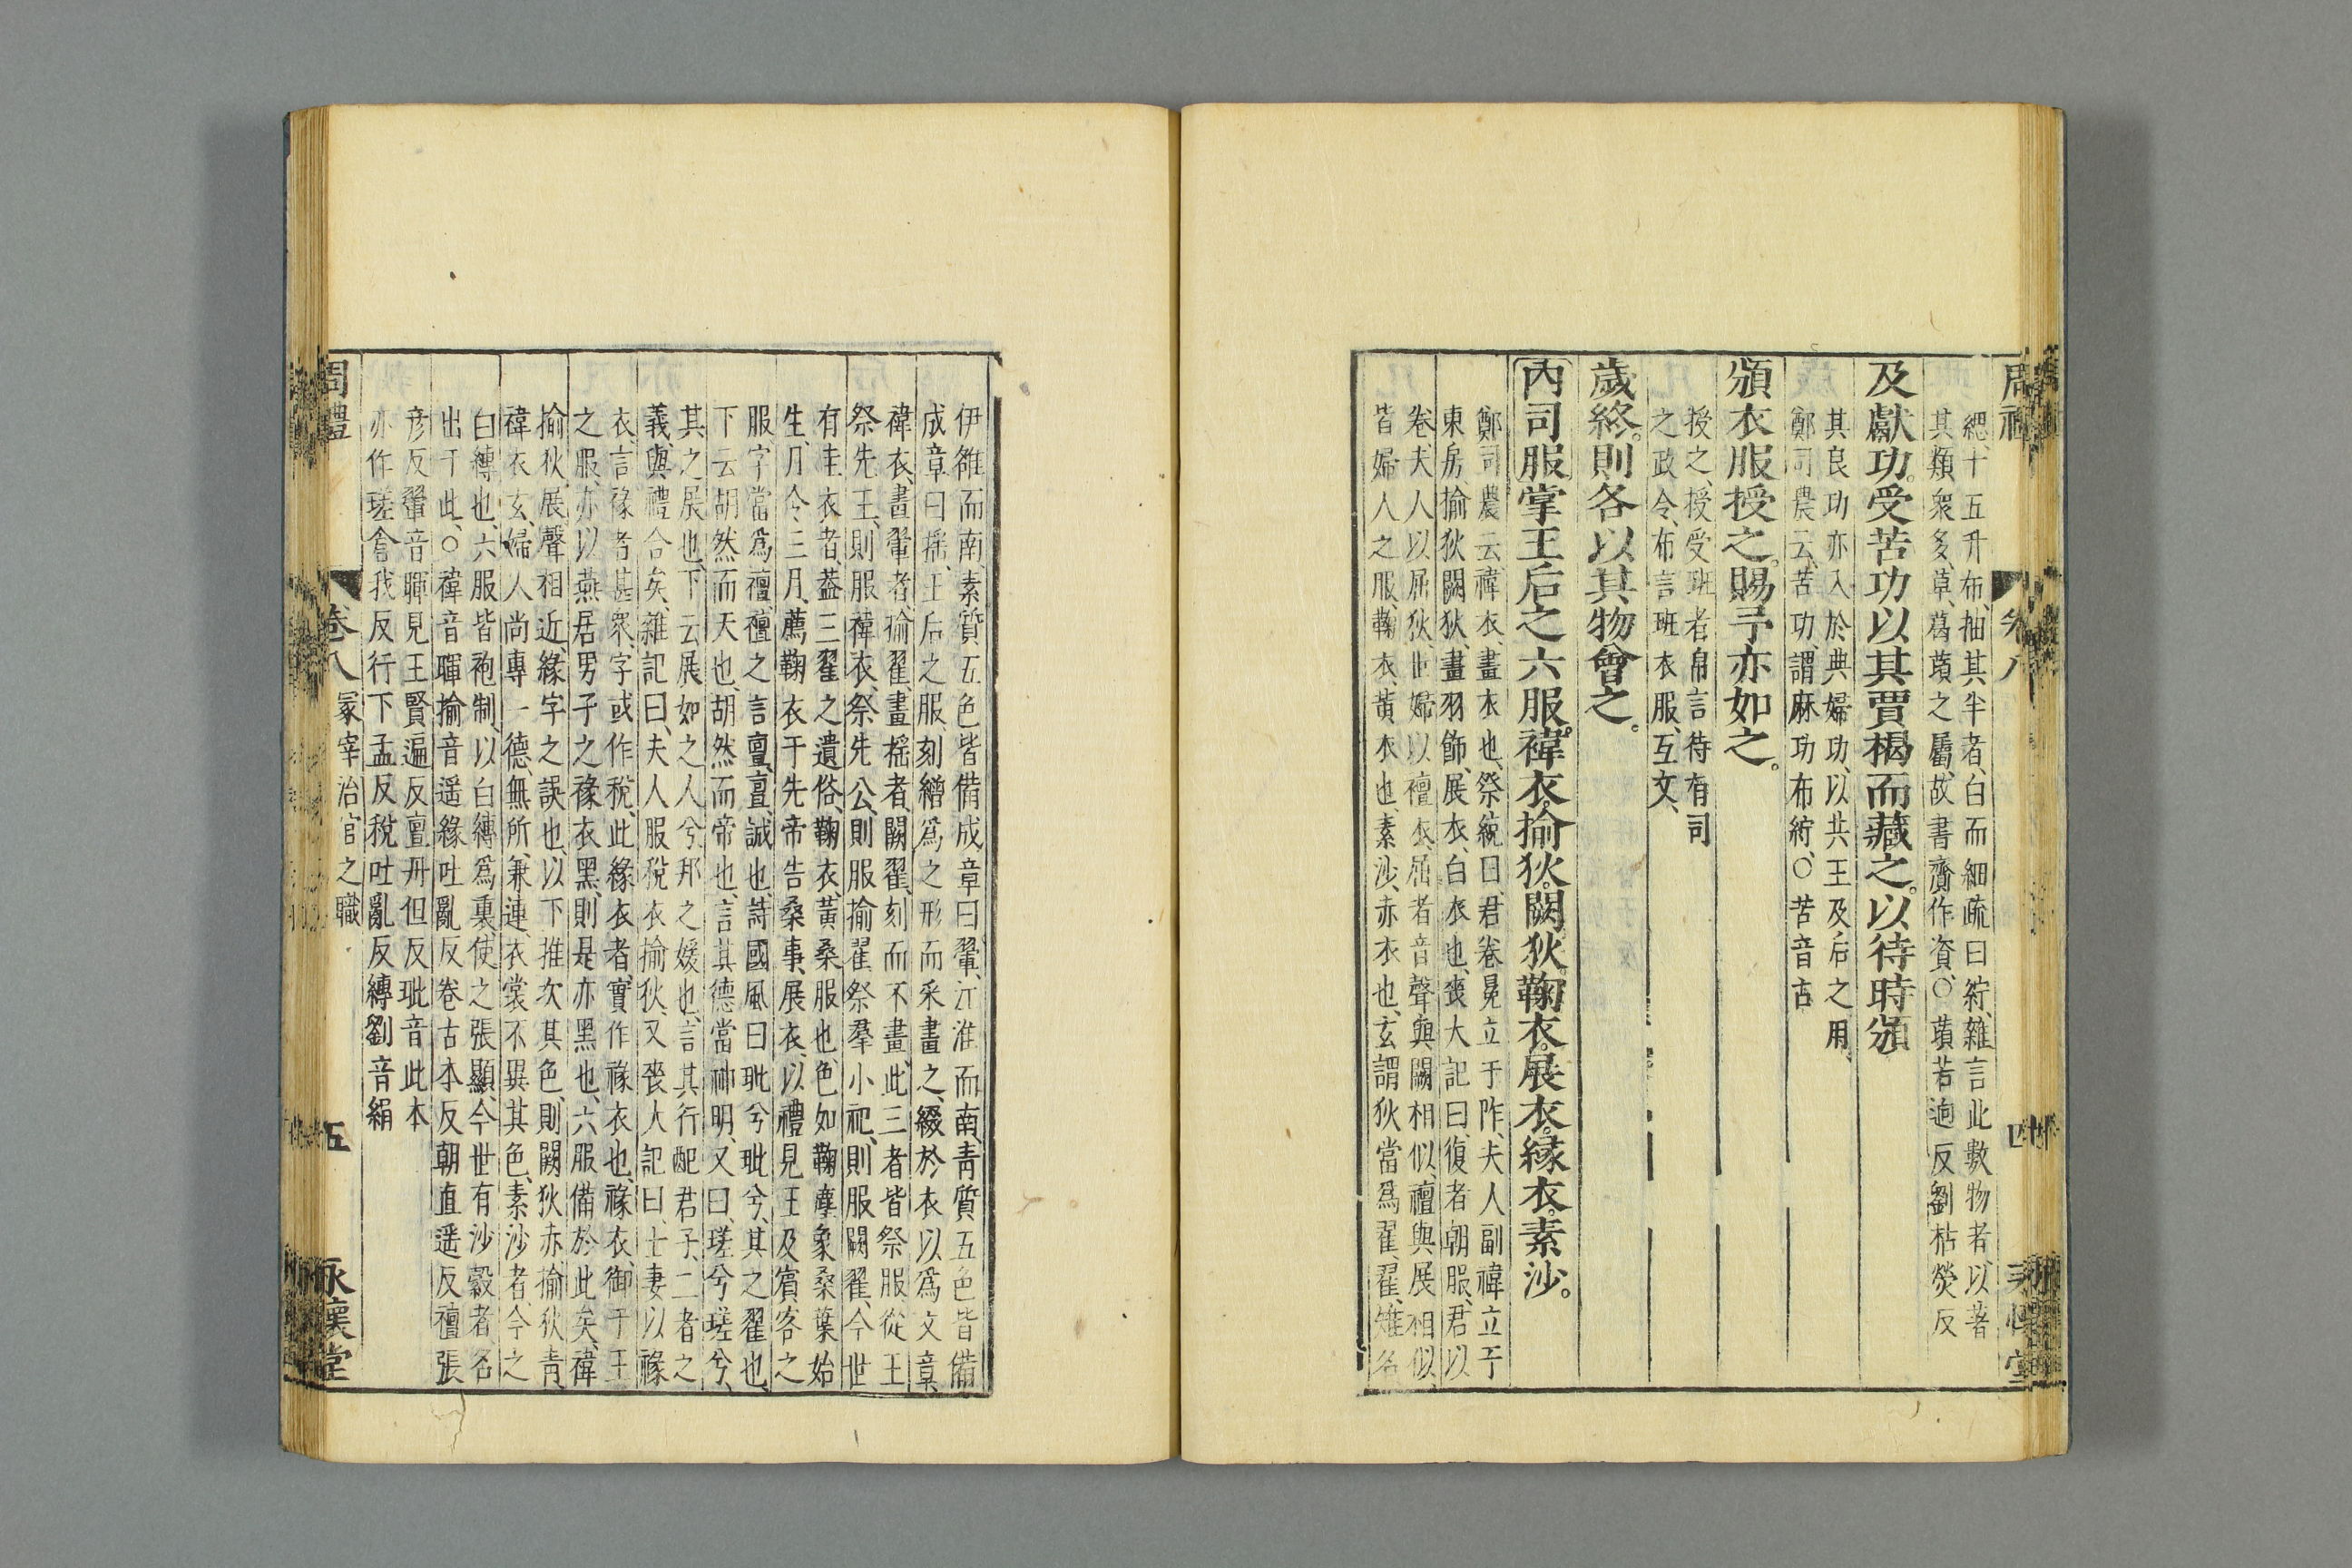 緦、十五升布、抽其半者、白而細疏曰紵、雜言此數物者、以著
其類衆多、草、葛蕦之屬、故書齎作資、○蕦苦逈反劉枯熒反
及獻功。受苦功以其賈楬而藏之。以待時頒
其良功亦入於典婦功、以共王及后之用、
鄭司農云、苦功、謂麻功布紵、○苦音古
頒衣服授之。賜予亦如之。
授之、授受班者、帛言待有司
之政令、布言班衣服、互文、
歲終。則各以其物會之。
內司服掌王后之六服。褘衣。揄狄。闕狄。鞠衣。展衣。緣衣。素沙。
鄭司農云、褘衣、畫衣也、祭統曰、君卷冕立于阼、夫人副褘立于
東房、揄狄闕狄、畫羽飾、展衣、白衣也、喪大記曰、復者朝服、君以
卷、夫人以屈狄、世婦以襢衣、屈者音聲與闕相似、襢與展相似、
皆婦人之服、鞠衣、黃衣也、素沙、赤衣也、玄謂狄當爲翟、翟、雉名
伊雒而南、素質五色皆備成章曰翬、江淮而南、靑質五色皆備
成章曰搖、王后之服、刻繒爲之形而采畫之、綴於衣以爲文章、
褘衣、畫翬者、揄翟、畫搖者、闕翟、刻而不畫、此三者皆祭服、從王
祭先王、則服褘衣、祭先公、則服揄翟、祭羣小祀、則服闕翟、今世
有圭衣者、葢三翟之遺俗、鞠衣、黃桑服也、色如鞠塵、象桑葉始
生、月令、三月、薦鞠衣于先帝、告桑事、展衣、以禮見王及賓客之
服、字當爲襢、襢之言亶、亶、誠也、詩國風曰、玼兮玼兮、其之翟也、
下云胡然而天也、胡然而帝也、言其德當神明、又曰、瑳兮瑳兮、
其之展也、下云展如之人兮、邦之媛也、言其行配君子、二者之
義、與禮合矣、雜記曰、夫人服稅衣揄狄、又喪大記曰、士妻以褖
衣、言褖者甚衆、字或作稅、此緣衣者、實作褖衣也、褖衣、御于王
之服、亦以燕居、男子之褖衣黑、則是亦黑也、六服備於此矣、褘
揄狄、展聲相近、緣字之誤也、以下推次其色、則闕狄赤、揄狄靑、
褘衣玄、婦人尚專一、德無所兼、連衣裳不異其色、素沙者、今之
白縳也、六服皆袍制、以白縳爲裏、使之張顯、今世有沙縠者、名
出于此、○褘音暉揄音遥緣吐亂反卷古本反朝直遥反襢張
彦反翬音暉見王賢遍反亶丹但反玼音此本
亦作瑳倉我反行下孟反稅吐亂反縳劉音絹
周禮
卷八
冢宰治官之職
五
永懷堂